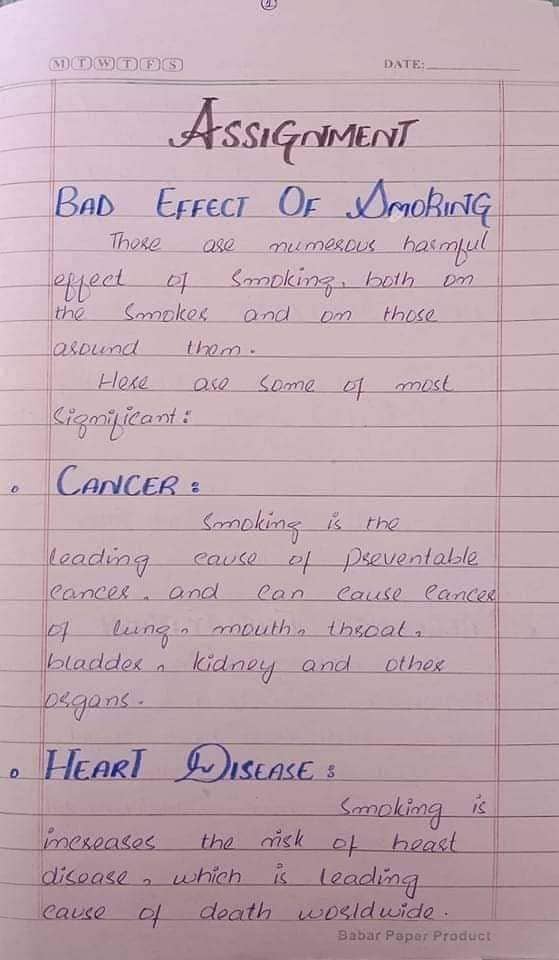 1
M T W T F S
DATE:
ASSIGNMENT
BAD EFFECT OF SMOKING
There are numerous harmful
effect of smoking, both on
the smoker and on those
around them.
Here are some of most
significant:
CANCER:
Smoking is the
leading cause of preventable
cancer, and can cause cancer
of lung, mouth, throat,
bladder, kidney and other
organs.
HEART DISEASE:
Smoking is
increases the risk of heart
disease, which is leading
cause of death worldwide.
Babar Paper Product